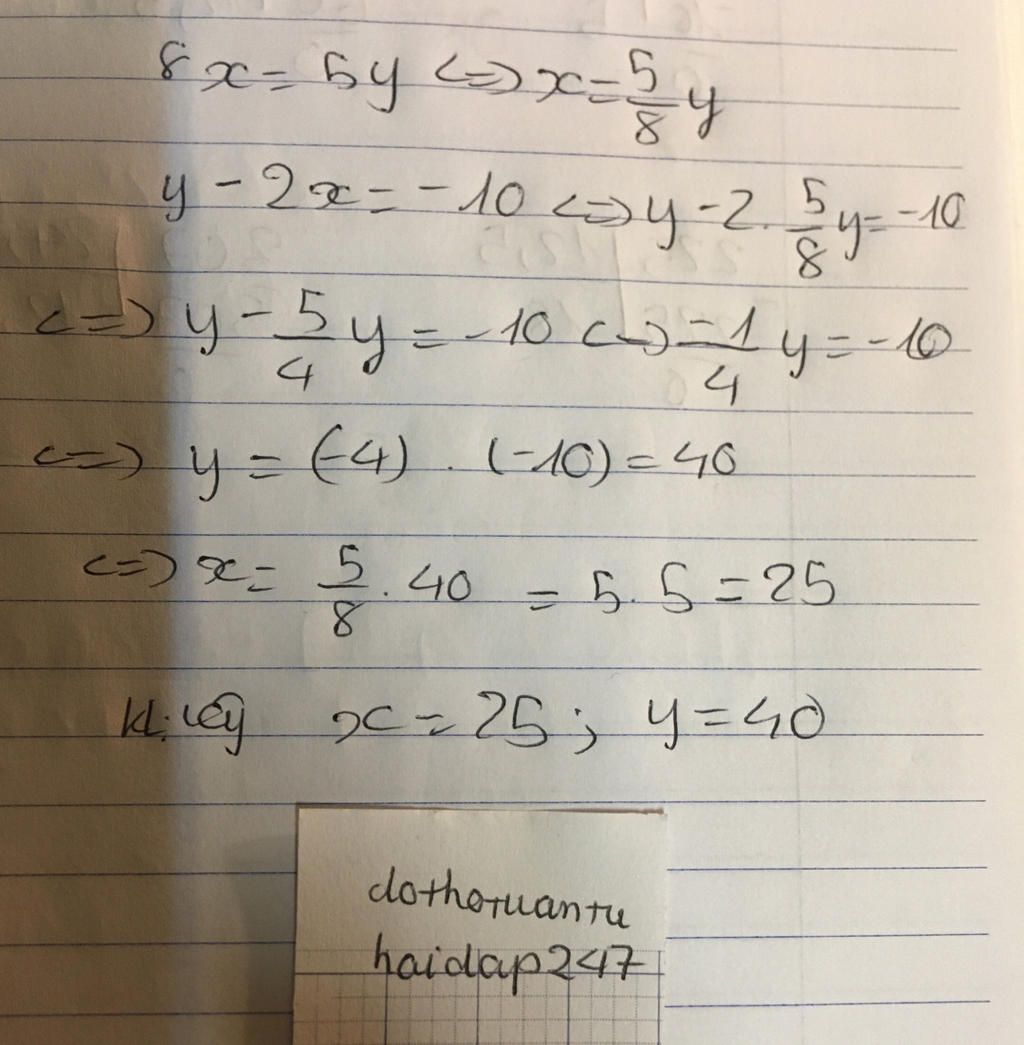 8x = 5y <=> x = 5/8 y
y - 2x = -10 <=> y - 2. 5/8 y = -10
<=> y - 5/4 y = -10 <=> -1/4 y = -10
<=> y = (-4) . (-10) = 40
<=> x = 5/8 . 40 = 5. 5 = 25
kl: vậy x = 25; y = 40
dothotuantu
haidap247